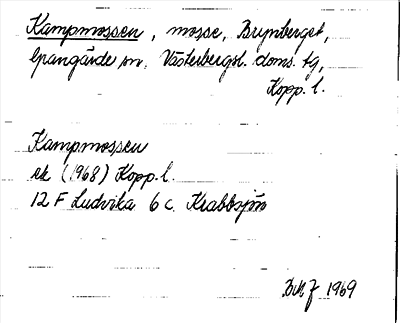 Kampmossen, mosse, Brynberget,
Grangärde sn, Västerbergsl. doms. tg,
Kopp. l.
Kampmossen
ek (1968) Kopp. l.
12 F Ludvika 6 c. Krabbsjön
1969